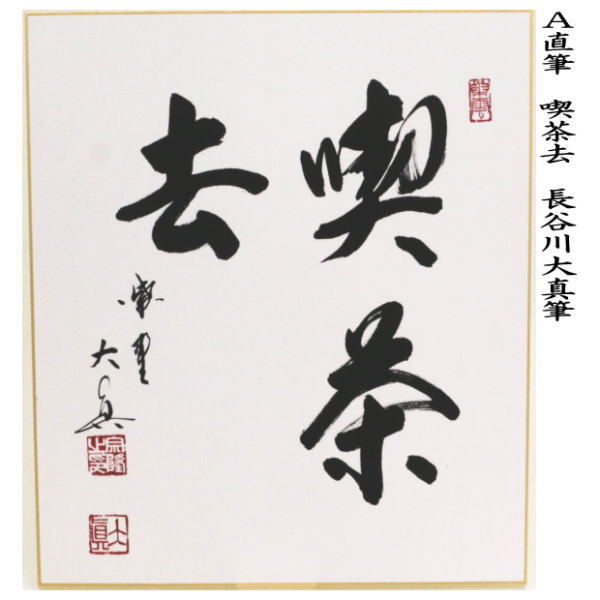 A直筆　喫茶去　長谷川大真筆
喫茶
去
大真